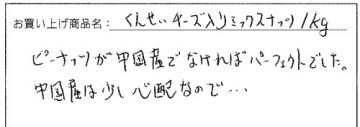 お買い上げ商品名: くんせいチーズ入りミックスナッツ1kg
ピーナッツが中国産でなければパーフェクトでした。
中国産は少し心配なので…